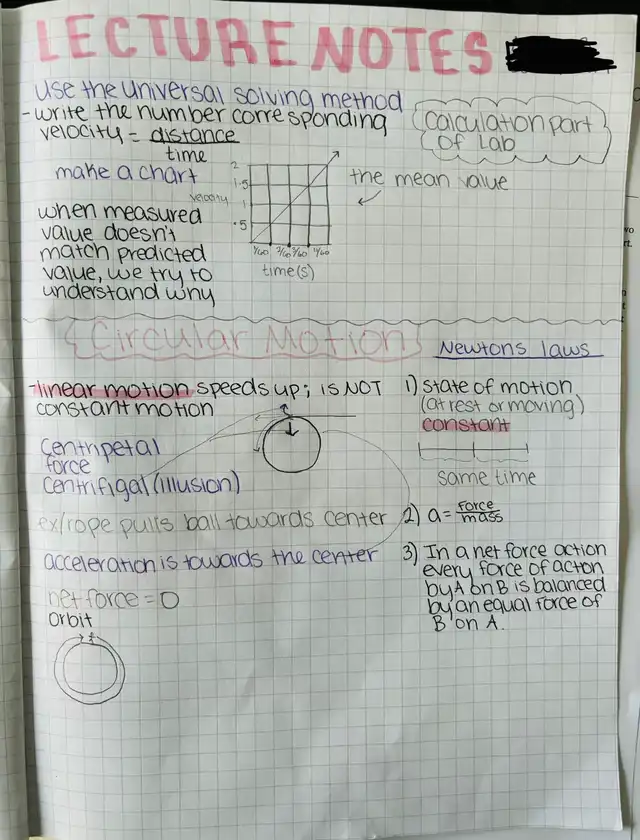 LECTURE NOTES
use the universal solving method
-write the number corresponding
velocity = distance
time
calculation part
of Lab
make a chart
2
1.5
1
.5
velocity
1/60 2/60 3/60 4/60
time(s)
the mean value
when measured
value doesn't
match predicted
value, we try to
understand why
Circular Motion
Newtons laws
-linear motion speeds up; is NOT
constant motion
centripetal
force
centrifigal (illusion)
ex/rope pulls ball towards center
acceleration is towards the center
net force = 0
orbit
1) state of motion
(at rest or moving)
constant
same time
2) a = force
mass
3) In a net force action
every force of acton
by A on B is balanced
by an equal force of
B on A.